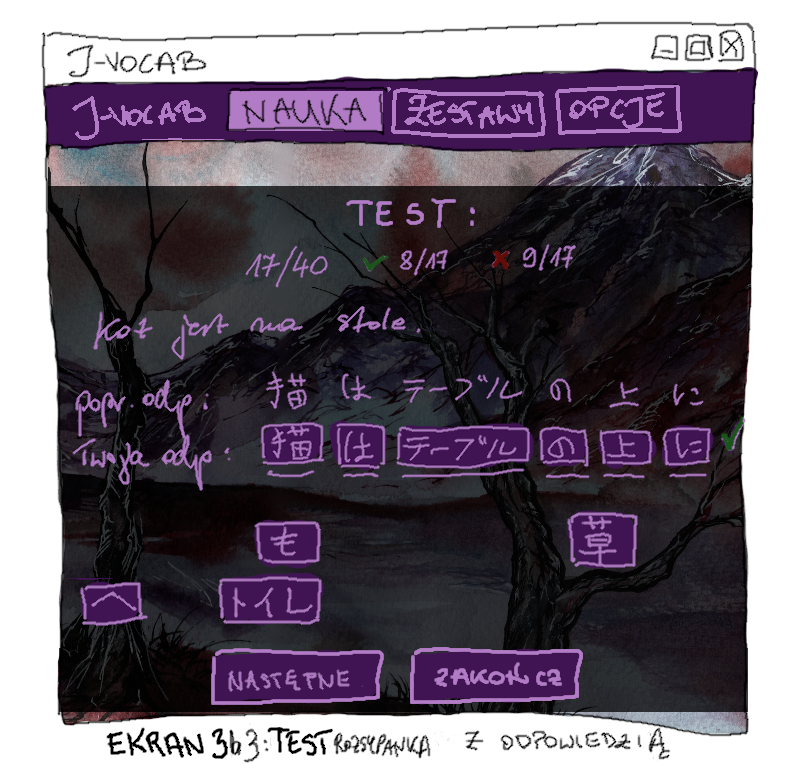 J-VOCAB
J-VOCAB NAUKA ZESTAWY OPCJE
TEST:
17/40 ✓ 8/17 ✗ 9/17
Kot jest na stole.
popr. odp.: 描 は テーブル の 上 に
Twoja odp.: 描 は テーブル の 上 に ✓
も 草
へ トイレ
NASTĘPNE ZAKOŃCZ
EKRAN 3b3: TEST ROZSYPANKA Z ODPOWIEDZIĄ